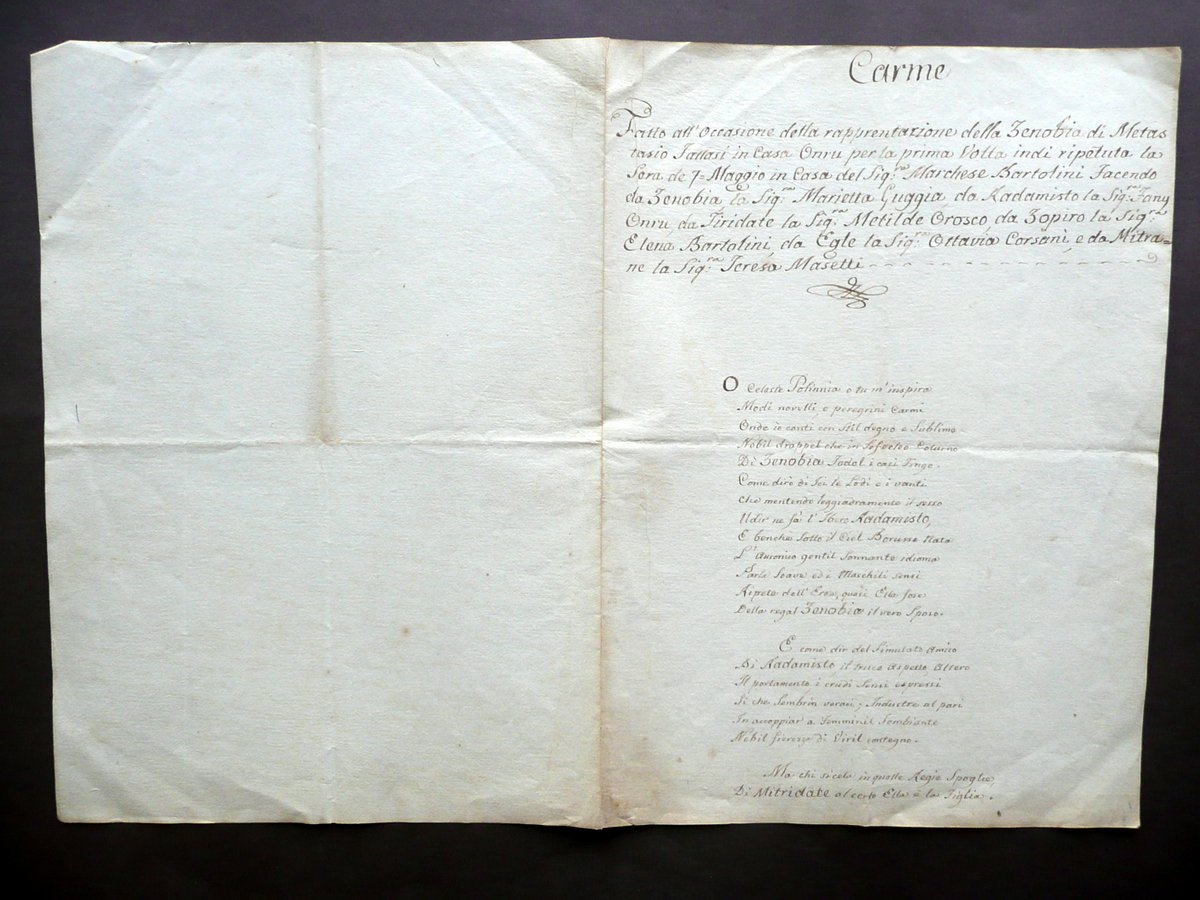 Carme
Fatto all'occasione della rapprentazione della Zenobia di Metas
tasio Fattasi in Casa Onru per la prima Volta indi ripetuta la
Sera de 7= Maggio in Casa del Sig.re Marchese Bartolini Facendo
da Zenobia la Sig.ra Marietta Guggia, da Radamisto la Sig.ra Fany
Onru, da Tiridate la Sig.ra Metilde Orosco, da Zopiro la Sig.ra
Elena Bartolini, da Egle la Sig.ra Ottavia Corsani, e da Mitra=
ne la Sig.ra Teresa Masetti
O Celeste Polinnia o tu m'inspira
Modi novelli, e peregrini Carmi
Onde io canti con Stil degno e Sublime
Nobil drappel che in Sofocleo Coturno
Di Zenobia Fadal i casi Finge.
Come dirò di Lei le Lodi e i vanti
Che mentendo leggiadramente il sesso
Udir ne fà l'Ibero Radamisto,
E benche Sotto il Ciel Borusso Nata
L'Ausonico gentil Sonnante idioma
Parli Soave ed i Maschili Sensi
Ripete dell'Eroe, quasi Ella fosse
Della regal Zenobia il vero Sposo.
E come dir del Simulato Amico
Di Radamisto il truce Aspetto, Altero
Il portamento, i crudi Sensi espressi
Sì che Sembrin veraci; Industre al pari
In accoppiar a Femminil Sembiante
Nobil fierezza di Viril contegno.
Ma chi si cela in quelle Regie Spoglie
Di Mitridate al certo Ella è la Figlia.